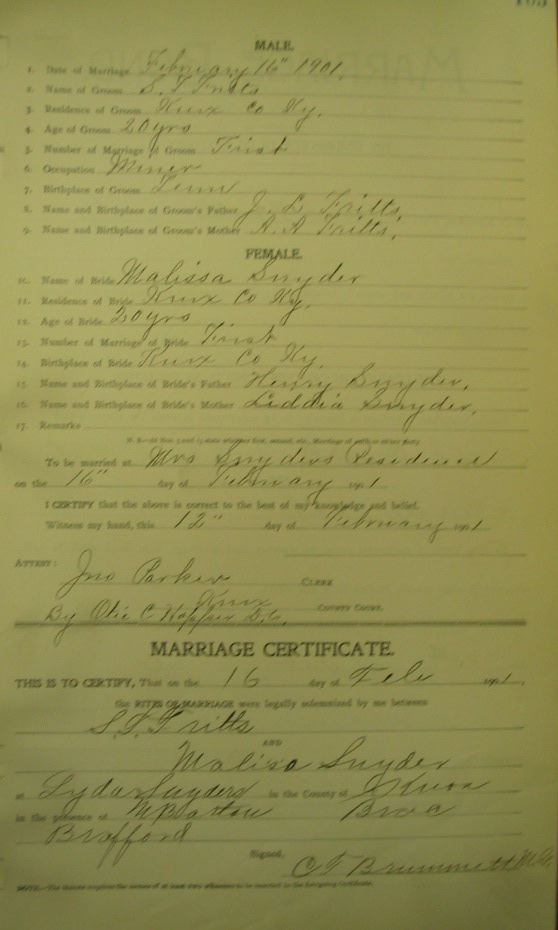 MALE.
1. Date of Marriage February 16" 1901.
2. Name of Groom S. T. Fritts
3. Residence of Groom Knox Co Ky.
4. Age of Groom 20 yrs
5. Number of Marriage of Groom First
6. Occupation Miner
7. Birthplace of Groom Tenn
8. Name and Birthplace of Groom's Father J. L. Fritts,
9. Name and Birthplace of Groom's Mother A. A Fritts,
FEMALE.
10. Name of Bride Malissa Snyder
11. Residence of Bride Knox Co Ky.
12. Age of Bride 20 yrs
13. Number of Marriage of Bride First
14. Birthplace of Bride Knox Co Ky.
15. Name and Birthplace of Bride's Father Henry Snyder,
16. Name and Birthplace of Bride's Mother Liddia Snyder,
17. Remarks
To be married at Mrs Snyders Residence
on the 16" day of February 1901
I CERTIFY that the above is correct to the best of my knowledge and belief.
Witness my hand, this 12" day of February 1901
ATTEST:
Jno Parker CLERK
Knox COUNTY COURT.
By Otis C D.C.
MARRIAGE CERTIFICATE.
THIS IS TO CERTIFY, That on the 16 day of Feb 1901,
the RITES OF MARRIAGE were legally solemnized by me between
S. T. Fritts
AND
Malisa Snyder
at Lyda Snyders in the County of Knox
in the presence of
Brafford
Signed, C T Brummett M.G.